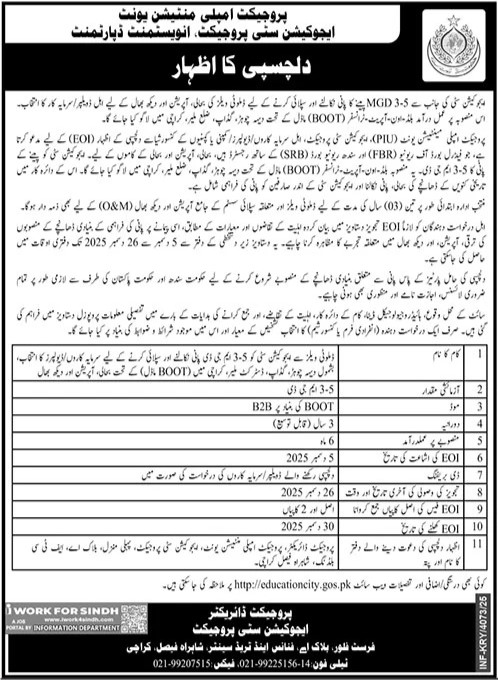 پروجیکٹ امپلی منٹیشن یونٹ
ایجوکیشن سٹی پروجیکٹ، انویسٹمنٹ ڈپارٹمنٹ
دلچسپی کا اظہار
ایجوکیشن سٹی کی جانب سے 3-5 MGD پینے کا پانی نکالنے اور سپلائی کرنے کے لیے ڈملوٹی ویلز کی بحالی، آپریشن اور دیکھ بھال کے لیے اہل ڈویلپرز/سرمایہ کار کا انتخاب۔
اس منصوبہ پر عمل درآمد بلڈ-اون-آپریٹ-ٹرانسفر (BOOT) ماڈل کے تحت دیہہ چوہڑ، گڈاپ، ضلع ملیر، کراچی میں لاگو کیا جائے گا۔
پروجیکٹ امپلی مینٹیشن یونٹ (PIU)، ایجوکیشن سٹی پروجیکٹ، اہل سرمایہ کاروں/ڈویلپرز/کمپنی یا کمپنیوں کے کنسورشیا سے دلچسپی کے اظہار (EOI) کے لیے مدعو کرتا
ہے، جو فیڈرل بورڈ آف ریونیو (FBR) اور سندھ ریونیو بورڈ (SRB) کے ساتھ رجسٹرڈ ہیں، بحالی، آپریشن اور بحالی کے کاموں کے لیے۔ ایجوکیشن سٹی کو پینے کے
پانی کا 3-5 ایم جی ڈی۔ یہ منصوبہ بلڈ-اون-آپریٹ-ٹرانسفر (BOOT) ماڈل کے تحت دیہہ چوہڑ، گڈاپ، ضلع ملیر، کراچی میں لاگو کیا جائے گا۔ اس کے دائرہ کار میں
تاریخی کنویں کے ڈھانچے کی بحالی، پانی نکالنا اور ایجوکیشن سٹی کے اندر صارفین کو پانی کی فراہمی شامل ہے۔
منتخب ادارہ ابتدائی طور پر تین (03) سال کی مدت کے لیے ڈملوٹی ویلز اور متعلقہ سپلائی سسٹم کے جامع آپریشن اور دیکھ بھال (O&M) کے لیے بھی ذمہ دار ہوگا۔
اہل درخواست دہندگان کو لازماً EOI تجویز دستاویز میں بیان کردہ اہلیت کے تقاضوں اور معیارات کے مطابق، اسی پیمانے پر پانی کی فراہمی کے بنیادی ڈھانچے کے منصوبوں
کی ترقی، آپریشن، اور دیکھ بھال میں متعلقہ تجربے کا مظاہرہ کرنا چاہیے۔ یہ دستاویز زیر دستخطی کے دفتر سے 5 دسمبر سے 26 دسمبر 2025 تک دفتری اوقات میں
حاصل کی جاسکتی ہے۔
دلچسپی کی حامل پارٹیز کے پاس پانی سے متعلق بنیادی ڈھانچے کے منصوبے شروع کرنے کے لیے حکومت سندھ اور حکومت پاکستان کی طرف سے لازمی طور پر تمام
ضروری لائسنس، اجازت نامے اور منظوری بھی ہونی چاہیے۔
سائٹ کے محل وقوع، ہائیڈروجیولوجیکل ڈیٹا، کام کے دائرہ کار، اہلیت کے تقاضے، اور جمع کرانے کی ہدایات کے بارے میں تفصیلی معلومات پروپوزل دستاویز میں فراہم کی
گئی ہیں۔ صرف ایک درخواست دہندہ (انفرادی فرم یا کنسورشیم) کا انتخاب تشخیص کے معیار اور اس میں موجود شرائط و ضوابط کی بنیاد پر کیا جائے گا۔
1 کام کا نام ڈملوٹی ویلز سے ایجوکیشن سٹی کو 3-5 ایم جی ڈی پانی نکالنے اور سپلائی کرنے کے لیے سرمایہ کاروں/ڈیولپرز کا انتخاب،
بشمول دیہہ چوہڑ، گڈاپ، ڈسٹرکٹ ملیر، کراچی میں (BOOT ماڈل) کے تحت بحالی، آپریشن اور دیکھ بھال
2 آزمائشی مقدار 3-5 ایم جی ڈی
3 موڈ BOOT کی بنیاد پر B2B
4 دورانیہ 3 سال (قابل توسیع)
5 منصوبے پر عملدرآمد 6 ماہ
6 EOI کی اشاعت کی تاریخ 5 دسمبر 2025
7 ڈی بریفنگ دلچسپی رکھنے والے ڈیولپرز/سرمایہ کاروں کی درخواست کی صورت میں
8 تجویز کی وصولی کی آخری تاریخ اور وقت 26 دسمبر 2025
9 EOI فیس کی اصل کاپیاں جمع کروانا اصل اور 2 کاپیاں
10 EOI کھلنے کی تاریخ 30 دسمبر 2025
11 اظہار دلچسپی کی دعوت دینے والے دفتر کا نام اور پتہ پروجیکٹ ڈائریکٹر، پروجیکٹ امپلی منٹیشن یونٹ، ایجوکیشن سٹی پروجیکٹ، پہلی منزل، بلاک اے، ایف ٹی سی
بلڈنگ، شاہراہ فیصل کراچی۔
کوئی بھی درستگی/اضافی اور تفصیلات ویب سائٹ http://educationcity.gos.pk پر ملاحظہ کی جاسکتی ہیں۔
پروجیکٹ ڈائریکٹر
ایجوکیشن سٹی پروجیکٹ
فرسٹ فلور، بلاک اے، فنانس اینڈ ٹریڈ سینٹر، شاہراہ فیصل، کراچی
ٹیلی فون: 14-99225156-021 فیکس: 99207515-021
I WORK FOR SINDH
www.iwork4sindh.com
A JOB PORTAL BY INFORMATION DEPARTMENT
INF-KRY/4073/25